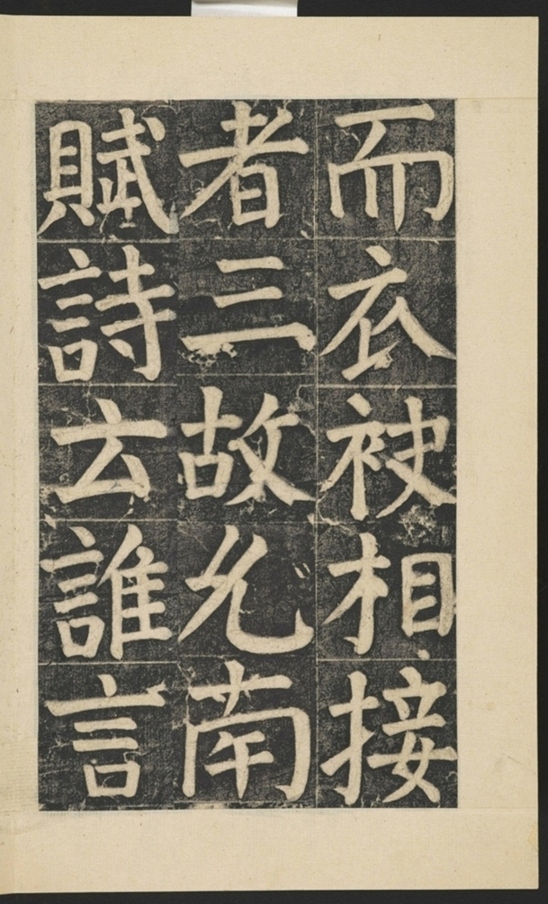 而衣袂相接
者三故允南
賦詩云誰言